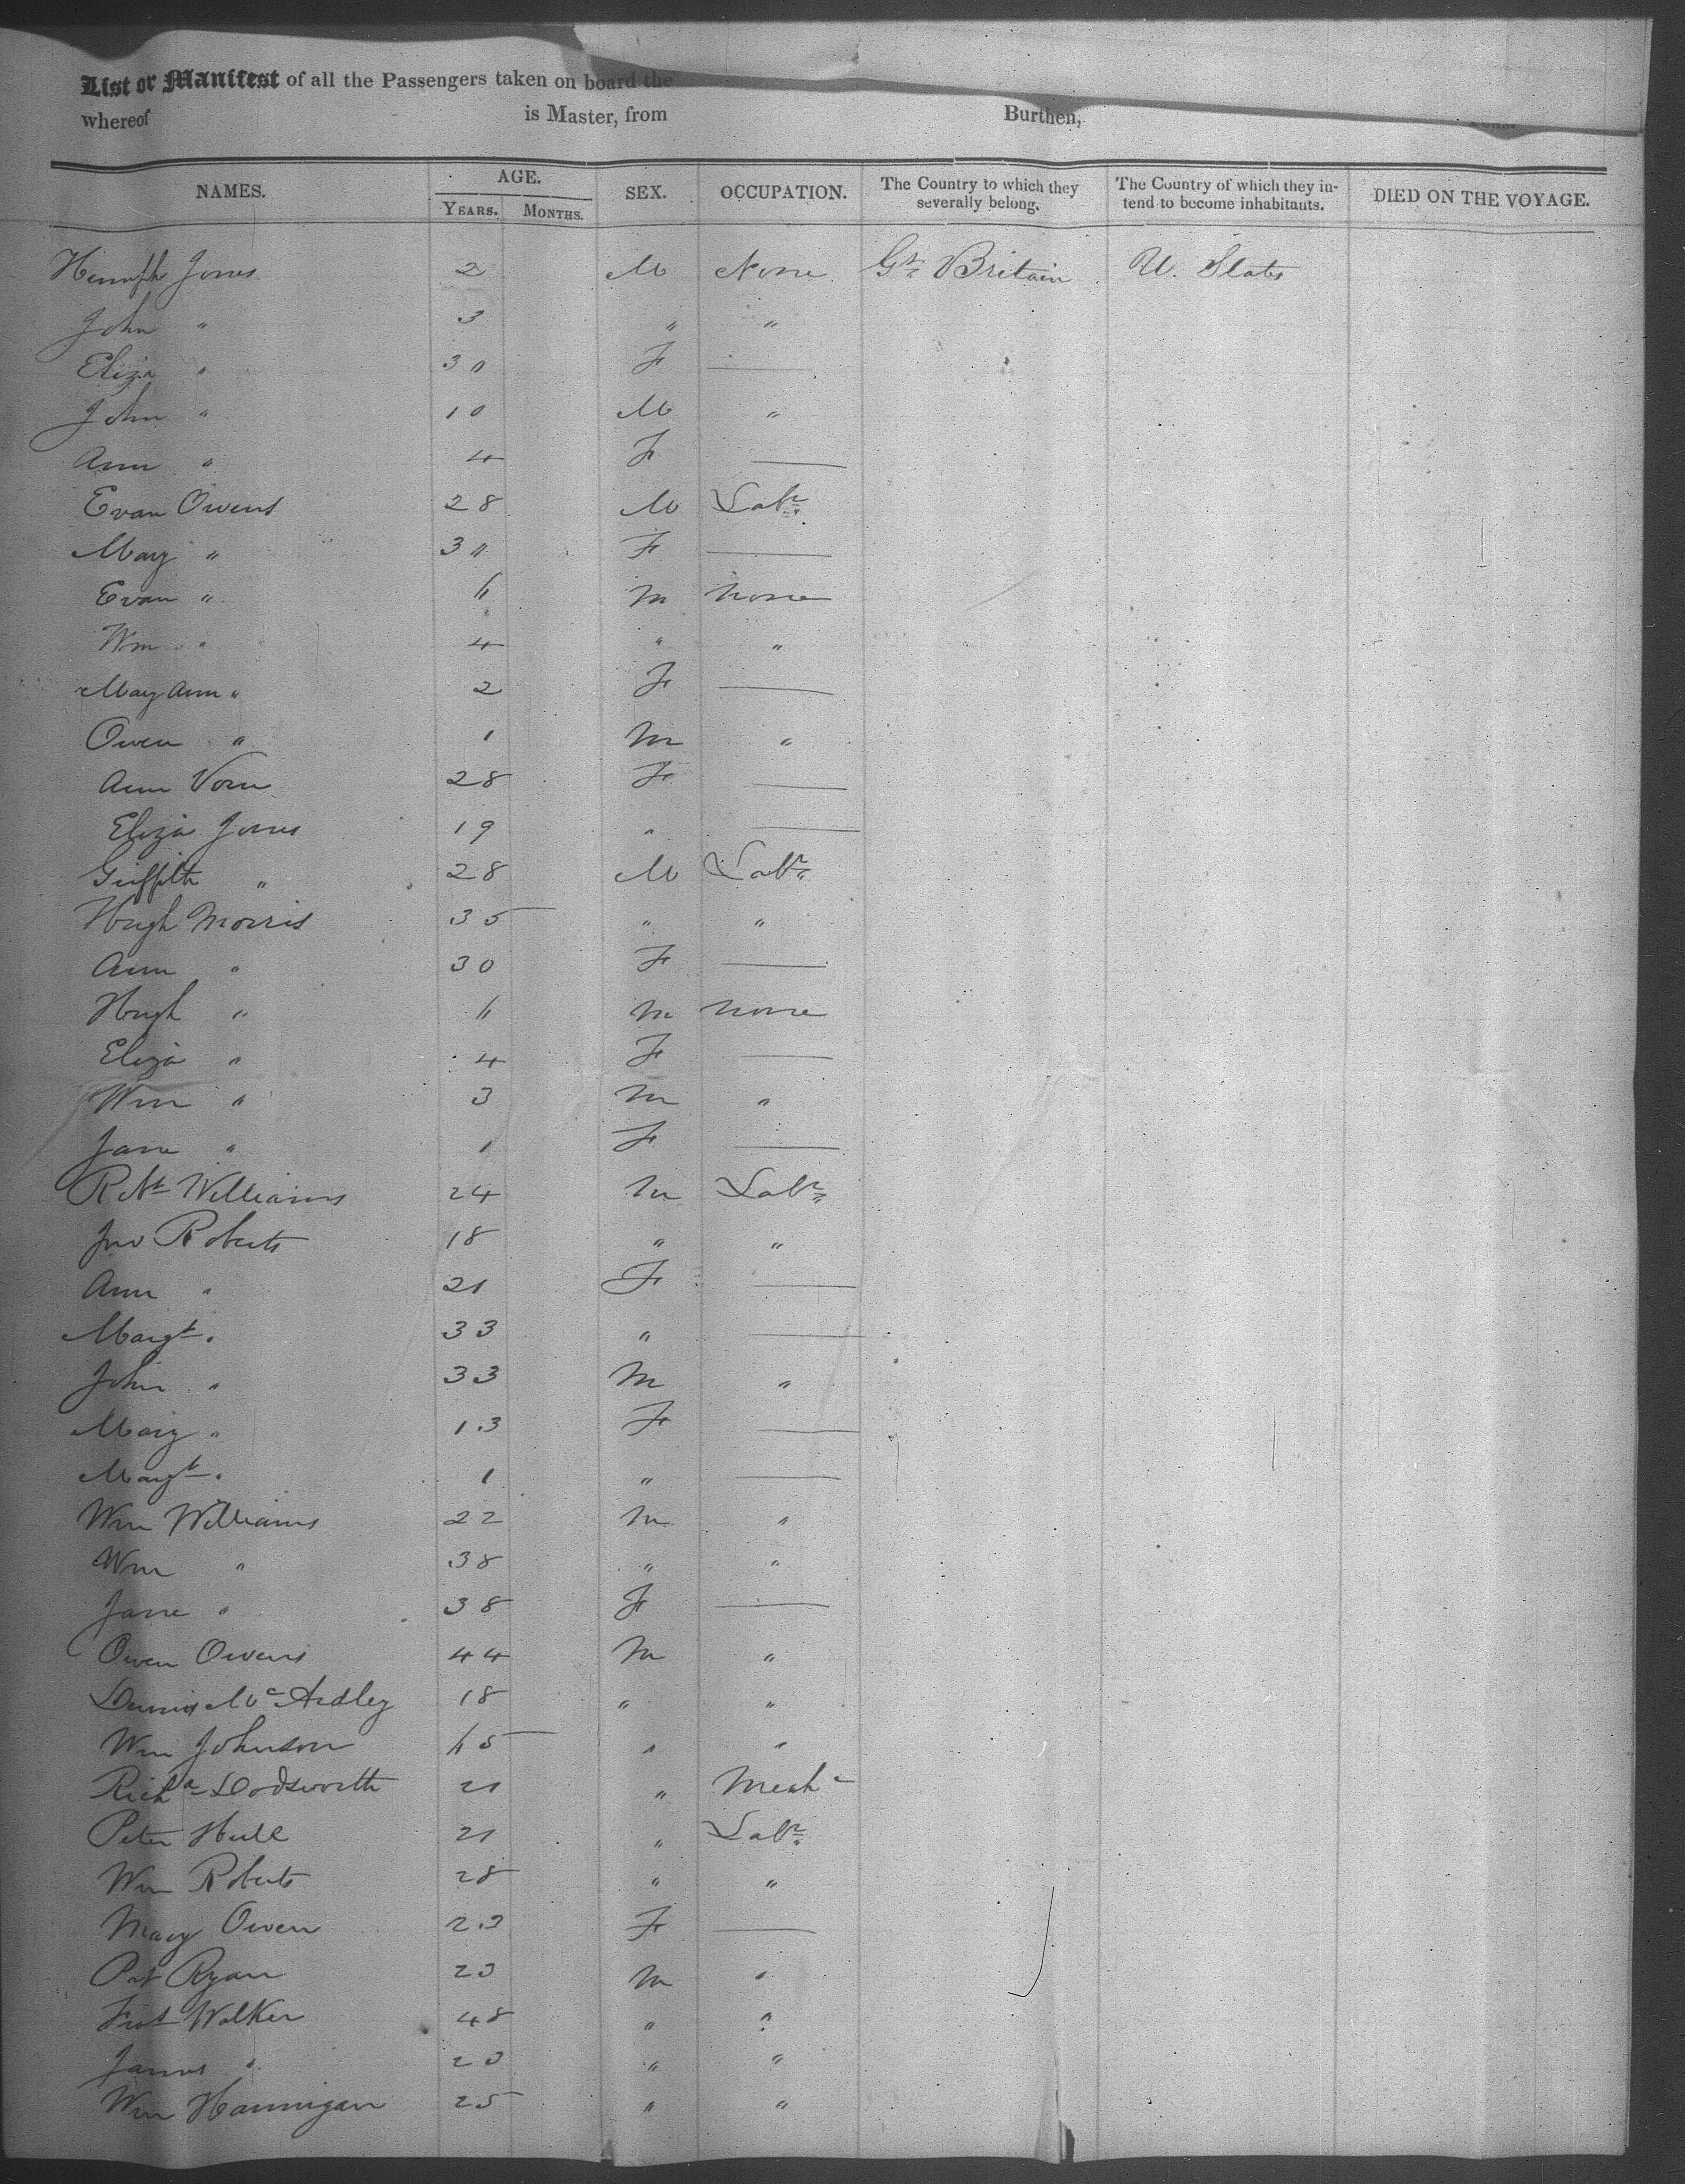 List or Manifest of all the Passengers taken on board the
whereof is Master, from Burthen, Tons.
NAMES. AGE. SEX. OCCUPATION. The Country to which they severally belong. The Country of which they intend to become inhabitants. DIED ON THE VOYAGE.
YEARS. MONTHS.
Humph Jones 2 M None Gt Britain U. States
John " 3 " "
Eliza " 30 F —
John " 10 M "
Ann " 4 F —
Evan Owens 28 M Labr
Mary " 30 F —
Evan " 6 M None
Wm " 4 " "
Mary Ann " 2 F —
Owen " 1 M "
Ann 28 F —
Eliza Jones 19 " —
Griffith " 28 M Labr
Hugh Morris 35 " "
Ann " 30 F —
Hugh " 6 M None
Eliza " 4 F —
Wm " 3 M "
Jane " 1 F —
Robt Williams 24 M Labr
Jno Roberts 18 " "
Ann " 21 F —
Margt " 33 " —
John " 33 M "
Mary " 13 F —
Margt " 1 " —
Wm Williams 22 M "
Wm " 38 " "
Jane " 38 F —
Owen Owens 44 M "
Dennis McArdley 18 " "
Wm Johnson 65 " "
Richd Dodsworth 21 " Mechc
Peter Hull 21 " Labr
Wm Roberts 28 " "
Mary Owen 23 F —
Pat Ryan 23 M "
Walker 48 " "
James " 23 " "
Wm Hannigan 25 " "